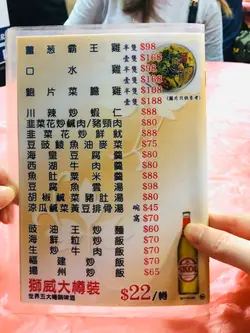 薑葱霸王雞 半隻 $98
壹隻 $168
口水雞 半隻 $98
壹隻 $168
鮑片菜膽雞 半隻 $108
壹隻 $188
(圖片只供參考)
川辣炒蝦仁 $88
韮菜花炒鹹肉/豬頸肉 $80
韮菜花炒鮮魷 $88
豆豉鯪魚油麥菜 $75
海皇豆腐羹 $80
西湖牛肉羹 $80
魚肚粟米羹 $80
豆腐魚雲湯 $98
胡椒鹹菜豬肚湯 $80
涼瓜鹹菜黃豆排骨湯 窩 $45
$70
豉油王炒麵 $60
海鮮粒炒飯 $70
生炒牛肉飯 $60
楊州炒飯 $65
獅威大樽裝
世界五大暢銷啤酒
$22/樽